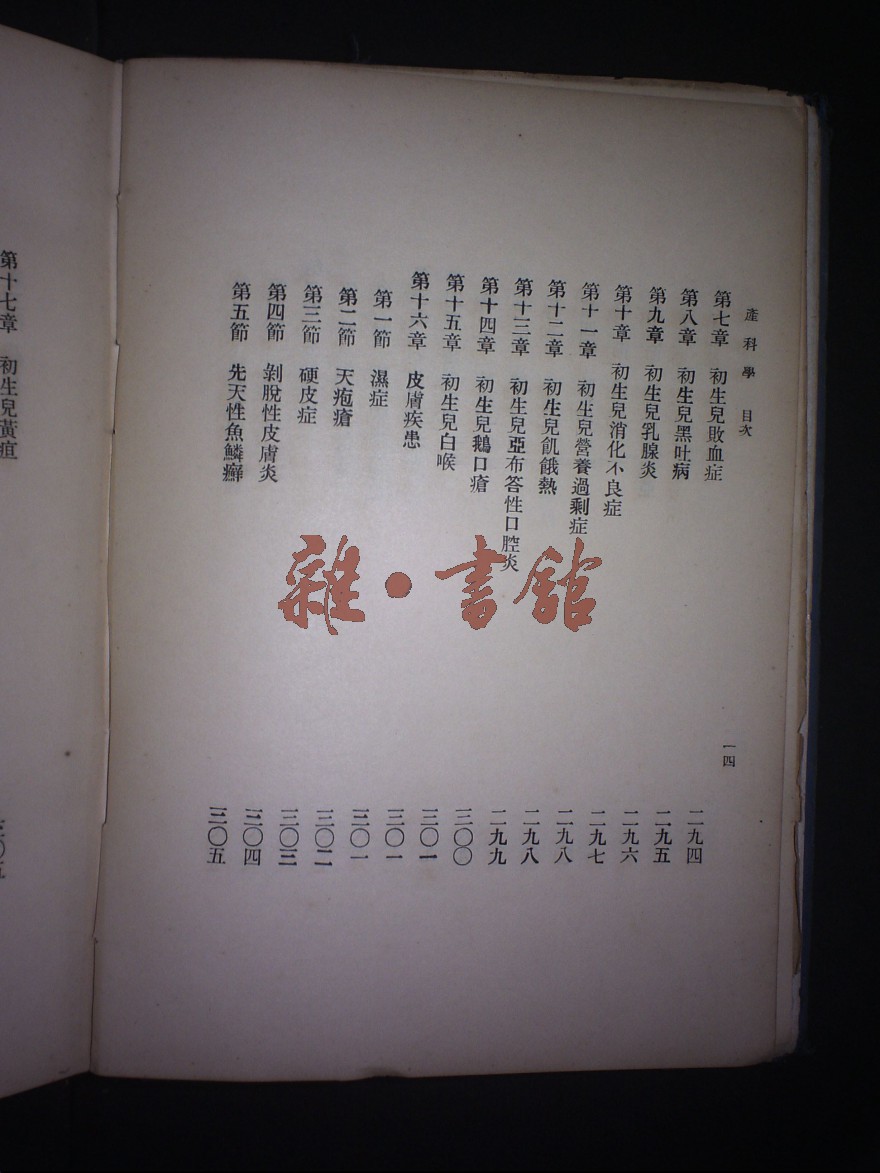 產科學 目次 一四
第七章 初生兒敗血症 二九四
第八章 初生兒黑吐病 二九五
第九章 初生兒乳腺炎 二九六
第十章 初生兒消化不良症 二九七
第十一章 初生兒營養過剩症 二九八
第十二章 初生兒飢餓熱 二九八
第十三章 初生兒亞布答性口腔炎 二九九
第十四章 初生兒鵝口瘡 三〇〇
第十五章 初生兒白喉 三〇一
第十六章 皮膚疾患 三〇一
第一節 濕症 三〇一
第二節 天疱瘡 三〇二
第三節 硬皮症 三〇三
第四節 剝脫性皮膚炎 三〇四
第五節 先天性魚鱗癬 三〇五
第十七章 初生兒黃疸 三〇五
雜·書館